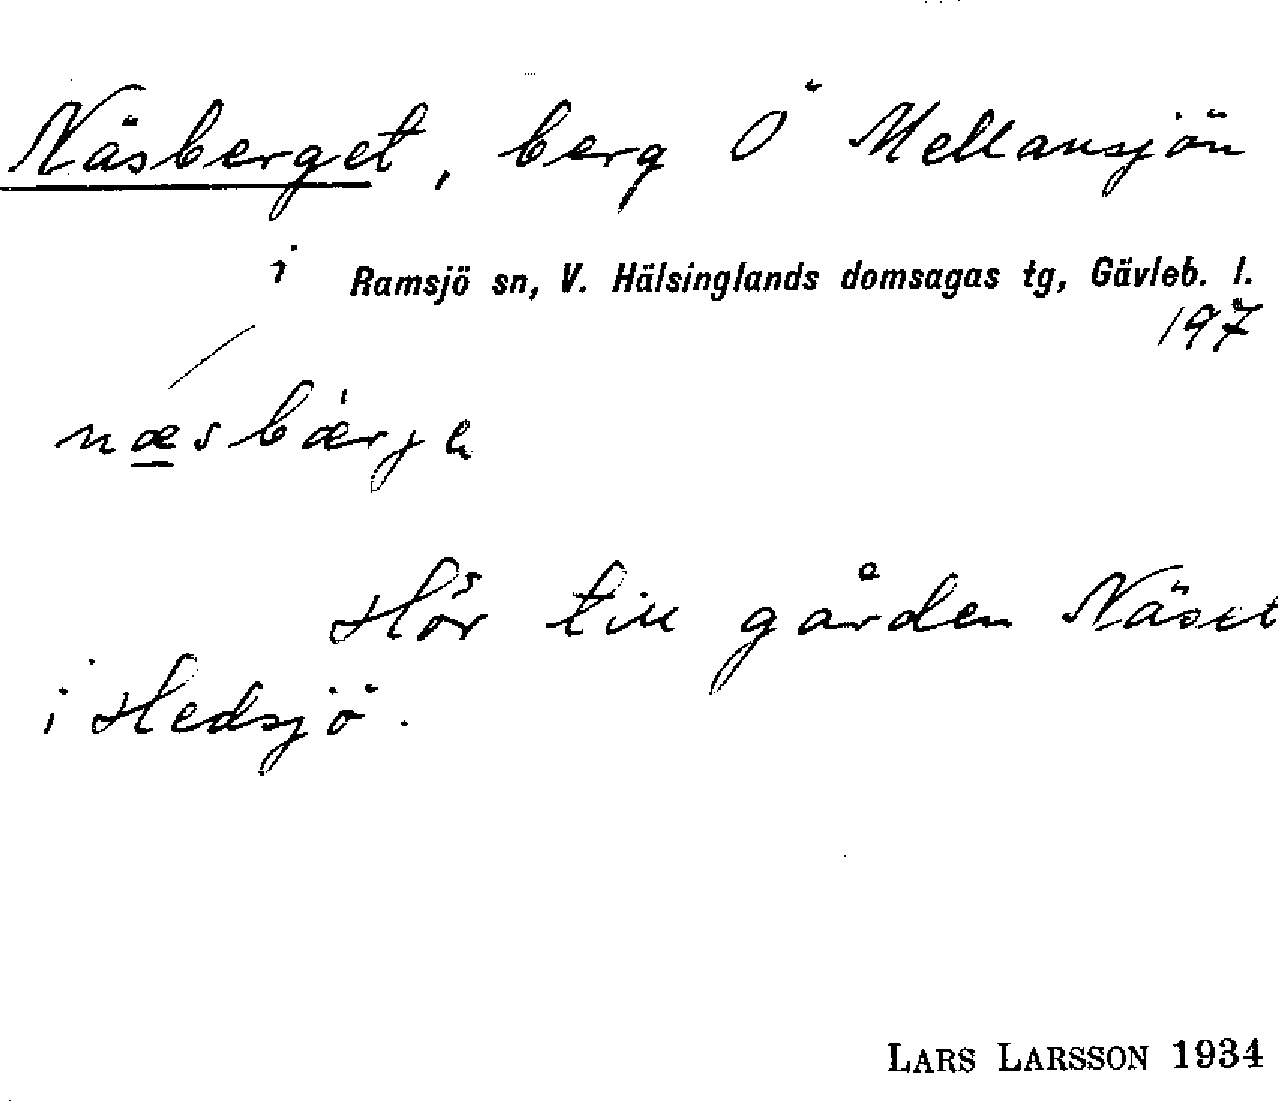 Näsberget, berg Ö Mellansjön
i Ramsjö sn, V. Hälsinglands domsagas tg, Gävleb. l.
197
Hör till gården Näset
i Hedsjö.
LARS LARSSON 1934